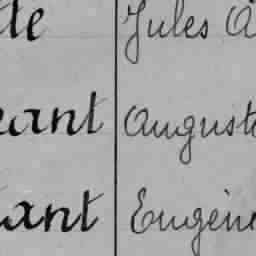 de Jules A
eant Auguste
tant Eugène